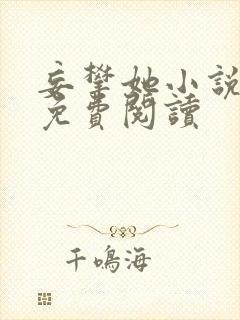 妄攀她小說
免費閱讀
千鳴海